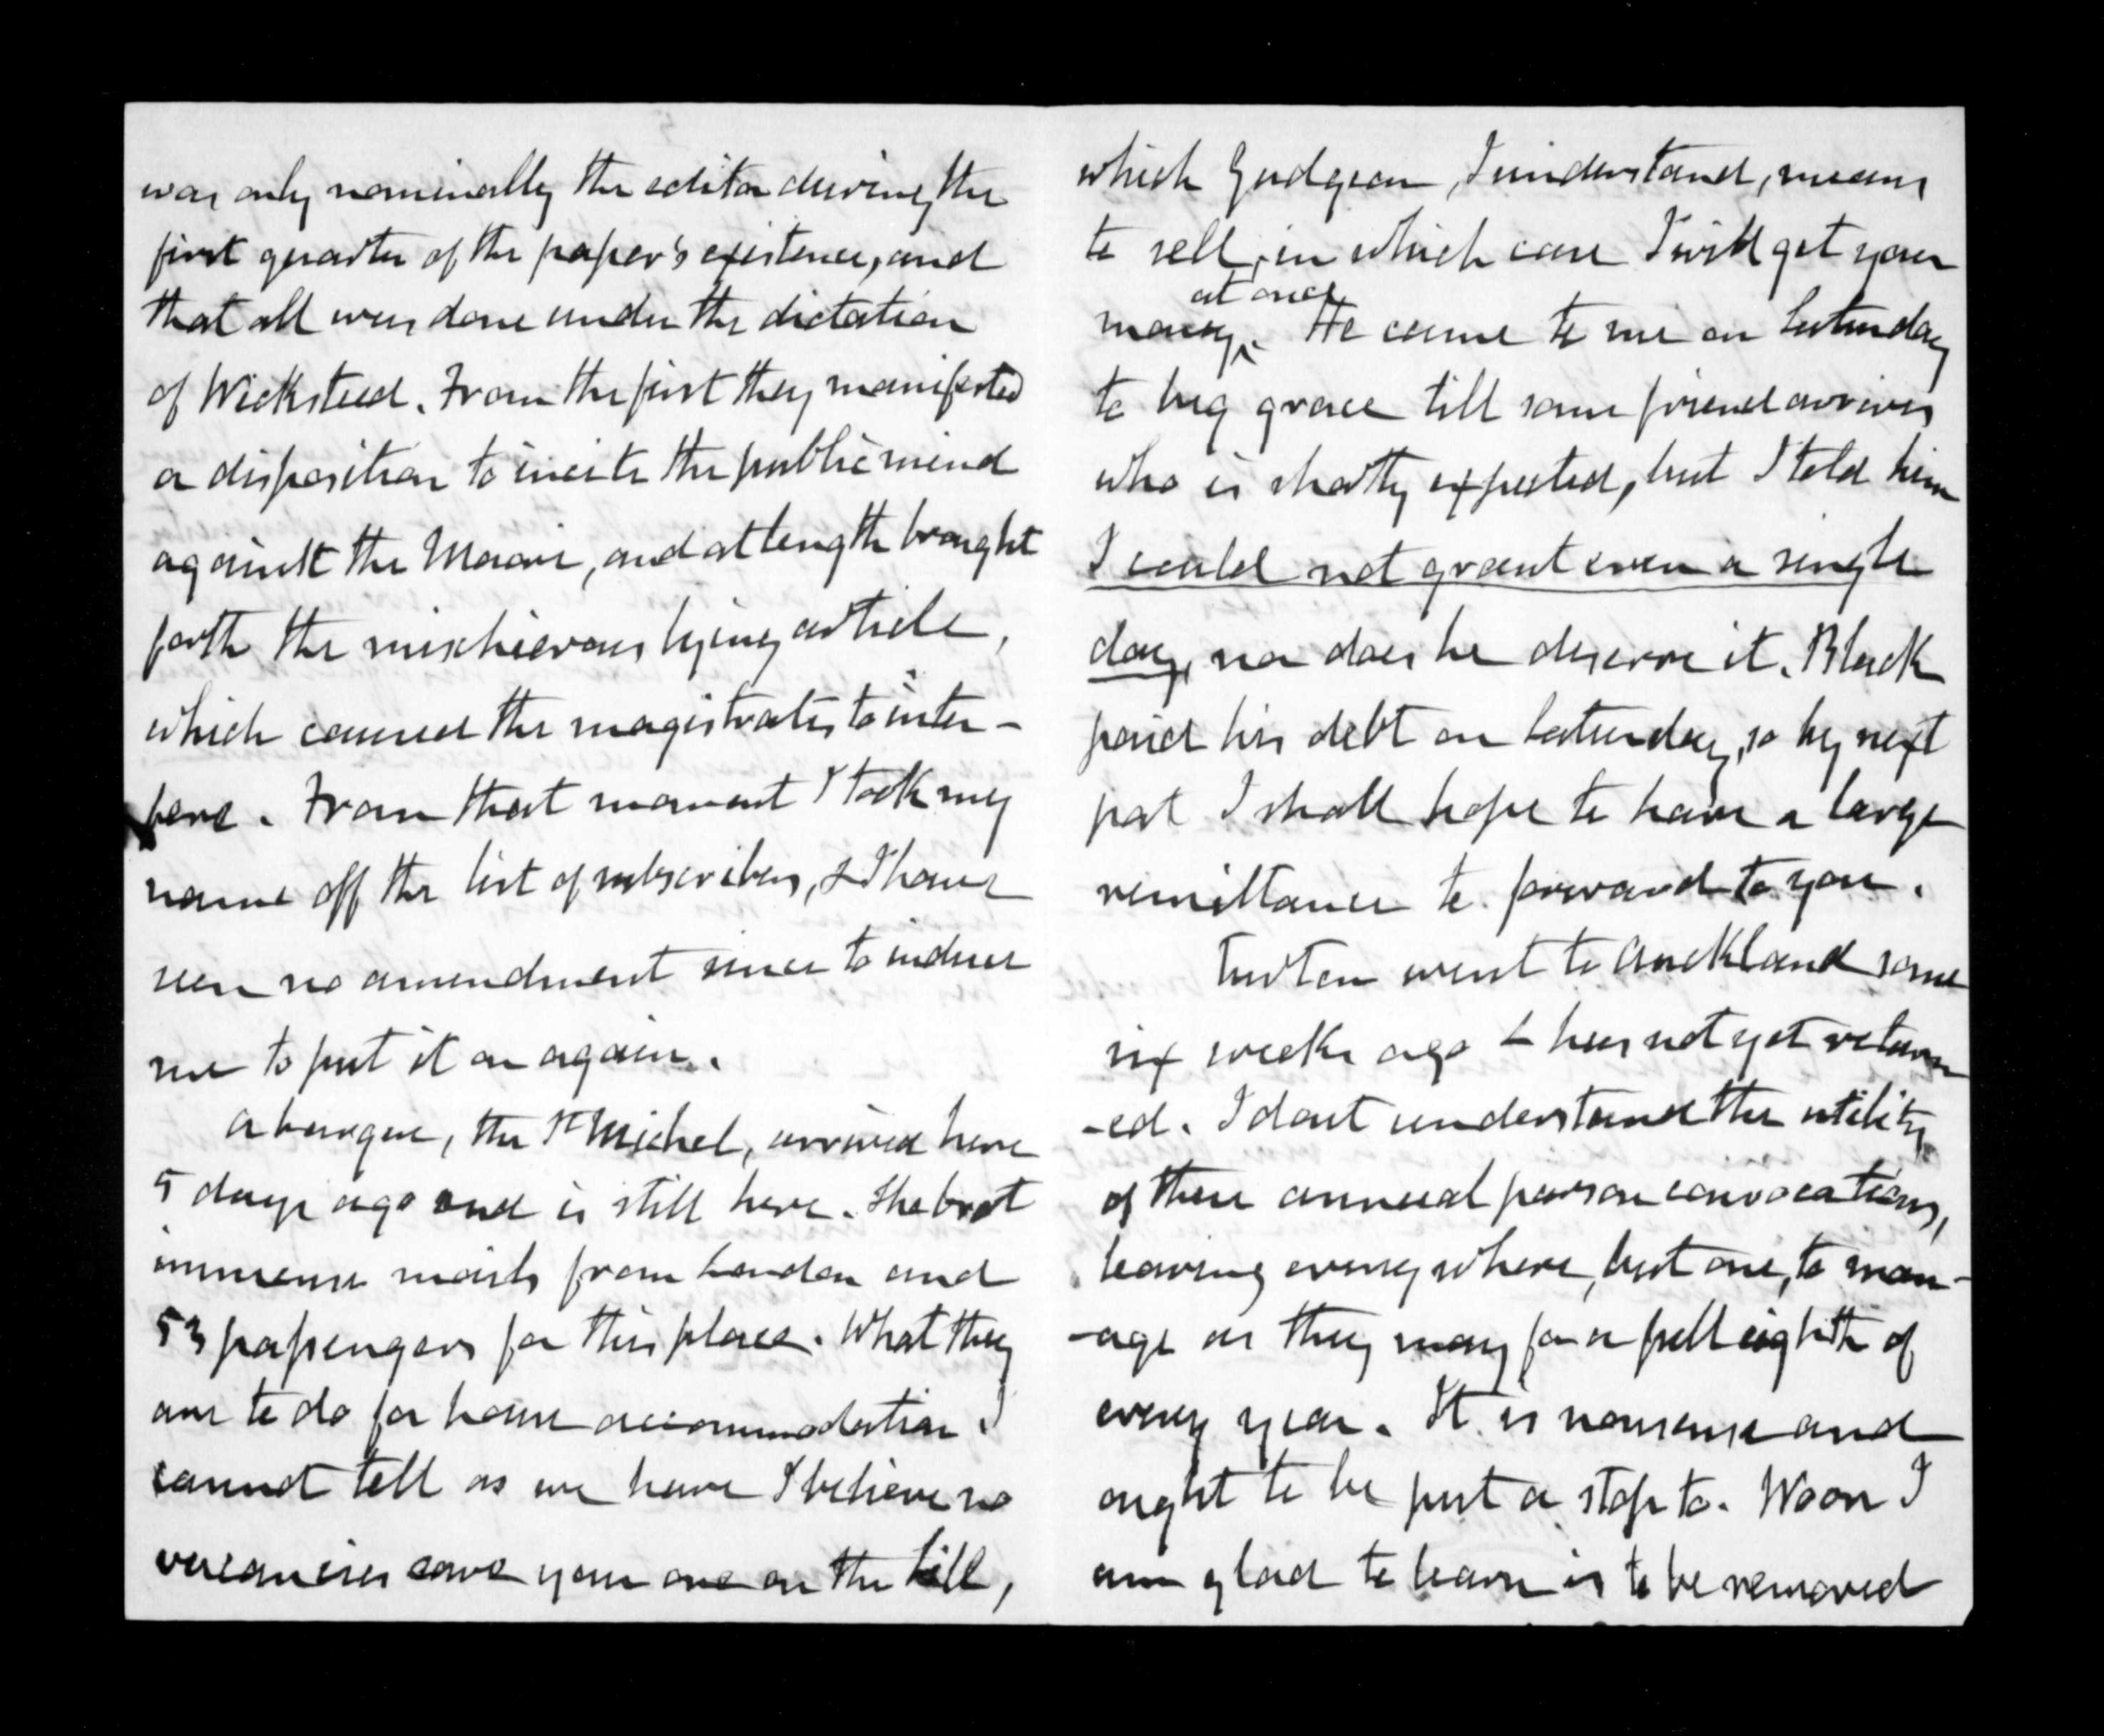 was only nominally the editor during the
first quarter of the paper's existence, and
that all was done under the dictation
of Wicksteed. From the first they manifested
a disposition to incite the public mind
against the Maori, and at length brought
forth the mischievous lying article,
which caused the magistrates to inter-
fere. From that moment I took my
name off the list of subscribers, & I have
seen no amendment since to induce
me to put it on again.
A barque, the St Michel, arrived here
5 days ago and is still here. She brot
immense mails from London and
53 passengers for this place. What they
are to do for house accommodation I
cannot tell as we have I believe no
vacancies save your one on the hill,
which Gudgeon, I understand, means
to sell, in which case I will get your
money at once. He came to me on Saturday
to beg grace till some friend arrives
who is shortly expected, but I told him
I could not grant even a single
day, nor does he deserve it. Black
paid his debt on Saturday, so by next
post I shall hope to have a large
remittance to forward to you.
Turton went to Auckland some
six weeks ago & has not yet return
-ed. I dont understand the utility
of these annual parson convocations,
leaving every where, but one, to man-
-age as they may for a full eighth of
every year. It is nonsense and
ought to be put a stop to. Woon I
am glad to learn is to be removed